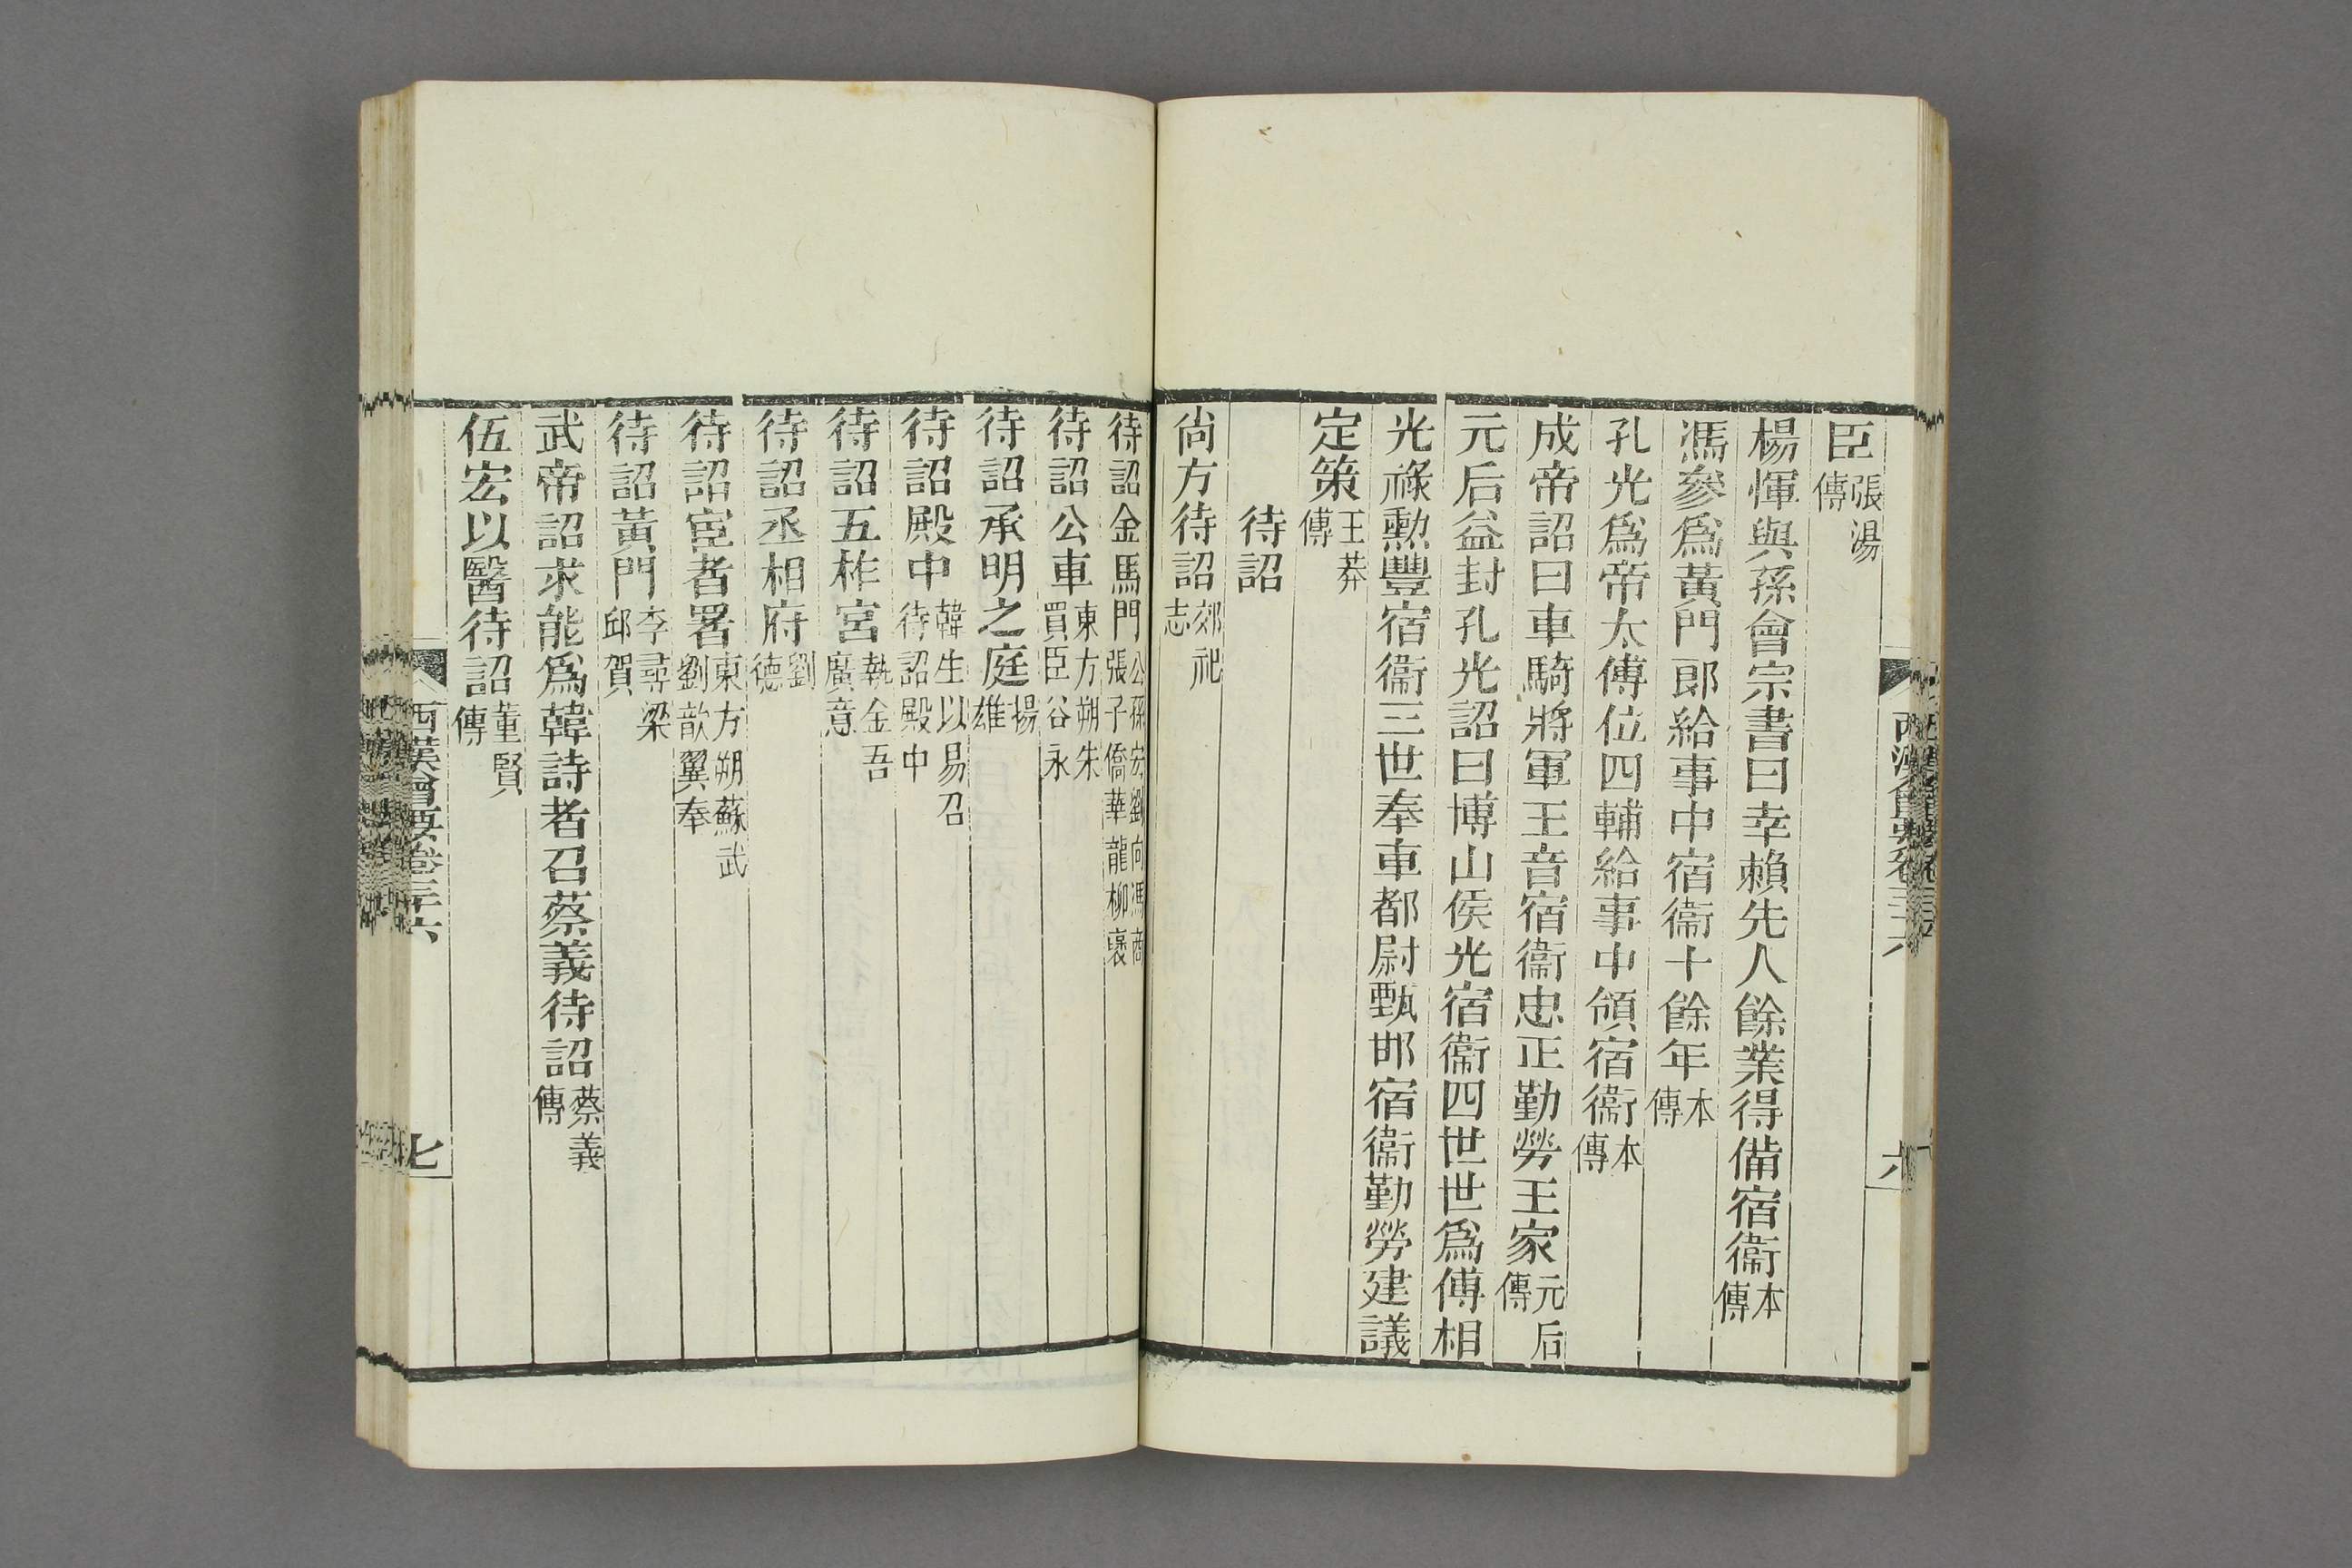 臣張湯傳
楊惲與孫會宗書曰幸賴先人餘業得備宿衞本傳
馮參爲黃門郎給事中宿衞十餘年本傳
孔光爲帝太傅位四輔給事中領宿衞本傳
成帝詔曰車騎將軍王音宿衞忠正勤勞王家元后傳
元后益封孔光詔曰博山侯光宿衞四世世爲傅相
光祿勳豐宿衞三世奉車都尉甄邯宿衞勤勞建議
定策王莽傳
待詔
尙方待詔郊祀志
待詔金馬門公孫宏劉向馮商張子僑華龍柳襃
待詔公車東方朔朱買臣谷永
待詔承明之庭揚雄
待詔殿中韓生以易召待詔殿中
待詔五柞宮執金吾廣意
待詔丞相府劉德
待詔宦者署東方朔蘇武劉歆翼奉
待詔黃門李尋梁邱賀
武帝詔求能爲韓詩者召蔡義待詔蔡義傳
伍宏以醫待詔董賢傳
西漢會要卷三十六
七